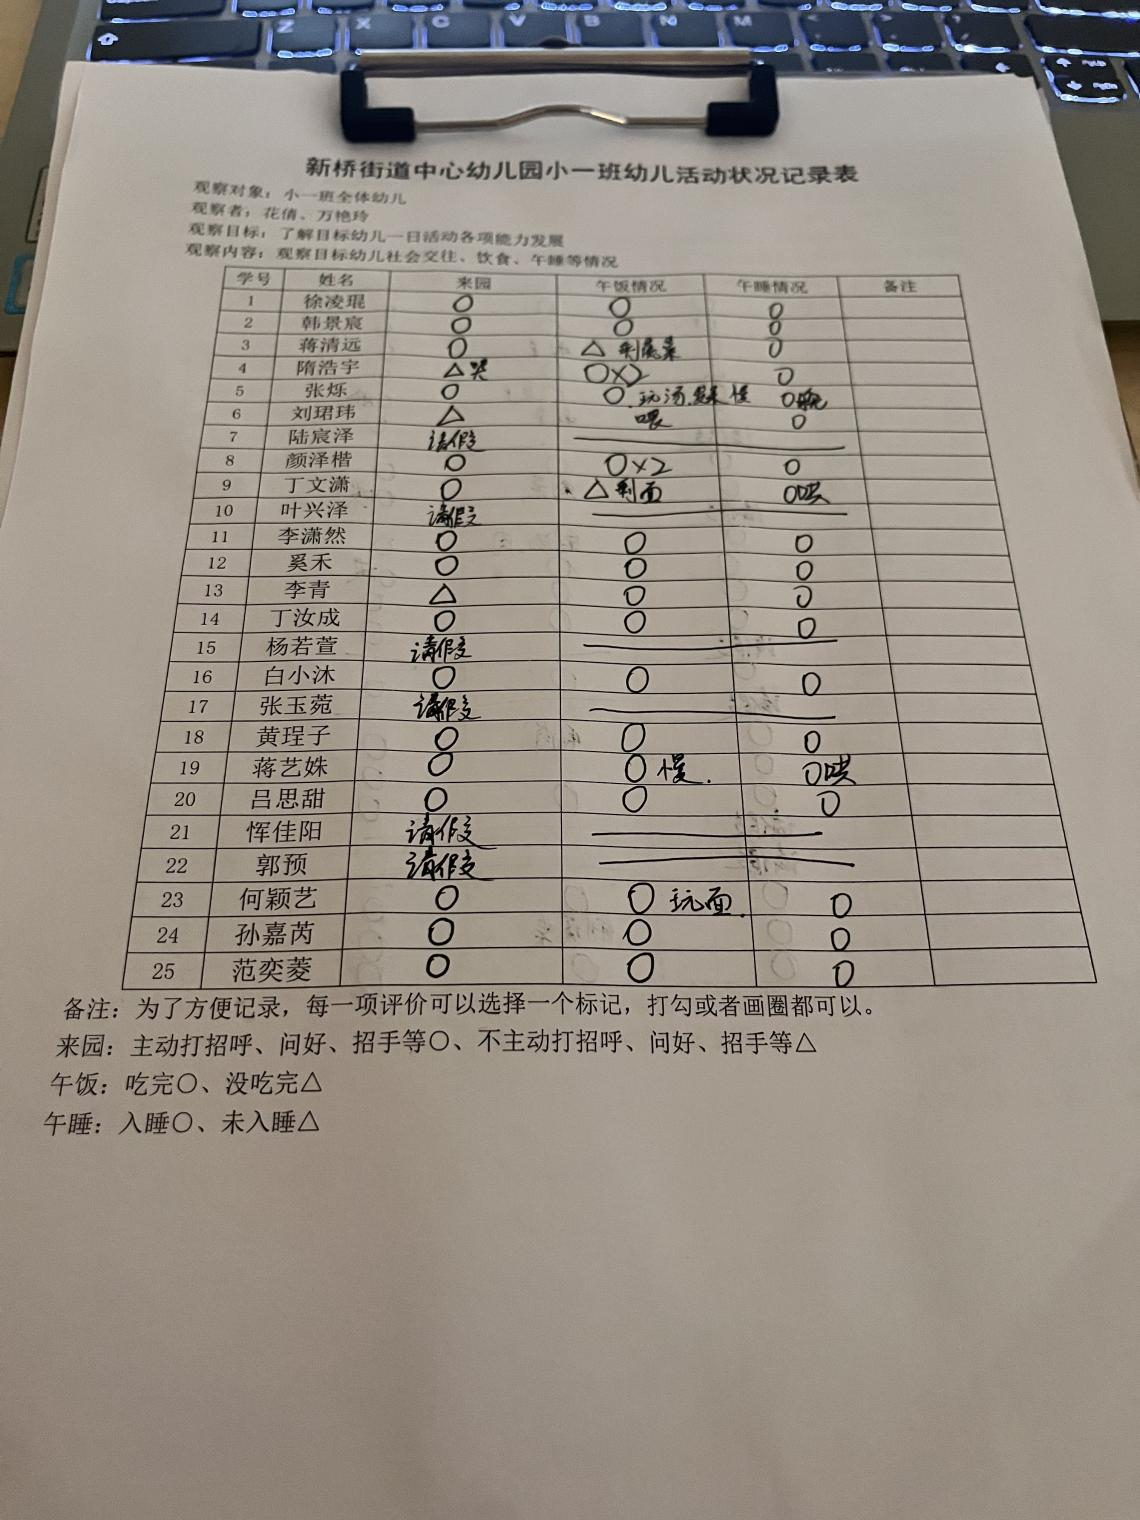 Z X C V B N M
新桥街道中心幼儿园小一班幼儿活动状况记录表
观察对象：小一班全体幼儿
观察者：花倩、万艳玲
观察目标：了解目标幼儿一日活动各项能力发展
观察内容：观察目标幼儿社会交往、饮食、午睡等情况
学号 姓名 来园 午饭情况 午睡情况 备注
1 徐凌琨 ○ ○ ○
2 韩景宸 ○ ○ ○
3 蒋清远 ○ △ 剩 ○
4 隋浩宇 △哭 ○×2 ○
5 张烁 ○ ○ 玩汤 慢 ○
6 刘珺玮 △ 喂 ○
7 陆宸泽 请假
8 颜泽楷 ○ ○×2 ○
9 丁文潇 ○ △剩面 ○哄
10 叶兴泽 请假
11 李潇然 ○ ○ ○
12 奚禾 ○ ○ ○
13 李青 △ ○ ○
14 丁汝成 ○ ○ ○
15 杨若萱 请假
16 白小沐 ○ ○ ○
17 张玉菀 请假
18 黄珵子 ○ ○ ○
19 蒋艺姝 ○ ○ 慢. ○哄
20 吕思甜 ○ ○ ○
21 恽佳阳 请假
22 郭预 请假
23 何颖艺 ○ ○ 玩面. ○
24 孙嘉芮 ○ ○ ○
25 范奕菱 ○ ○ ○
备注：为了方便记录，每一项评价可以选择一个标记，打勾或者画圈都可以。
来园：主动打招呼、问好、招手等○、不主动打招呼、问好、招手等△
午饭：吃完○、没吃完△
午睡：入睡○、未入睡△